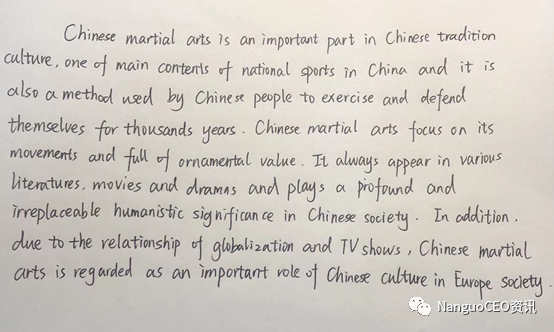 Chinese martial arts is an important part in Chinese tradition
culture, one of main contents of national sports in China and it is
also a method used by Chinese people to exercise and defend
themselves for thousands years. Chinese martial arts focus on its
movements and full of ornamental value. It always appear in various
literatures, movies and dramas and plays a profound and
irreplaceable humanistic significance in Chinese society. In addition.
due to the relationship of globalization and TV shows, Chinese martial
arts is regarded as an important role of Chinese culture in Europe society.
NanguoCEO资讯